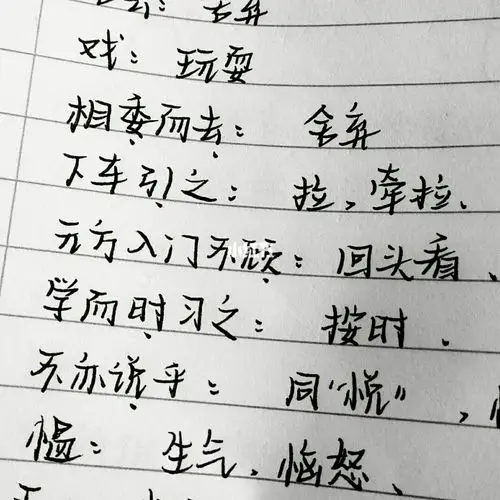 去：舍弃
戏：玩耍
相委而去：舍弃
下车引之：拉、牵拉、
元方入门不顾：回头看、
学而时习之：按时、
不亦说乎：同“悦”，
愠：生气、恼怒、